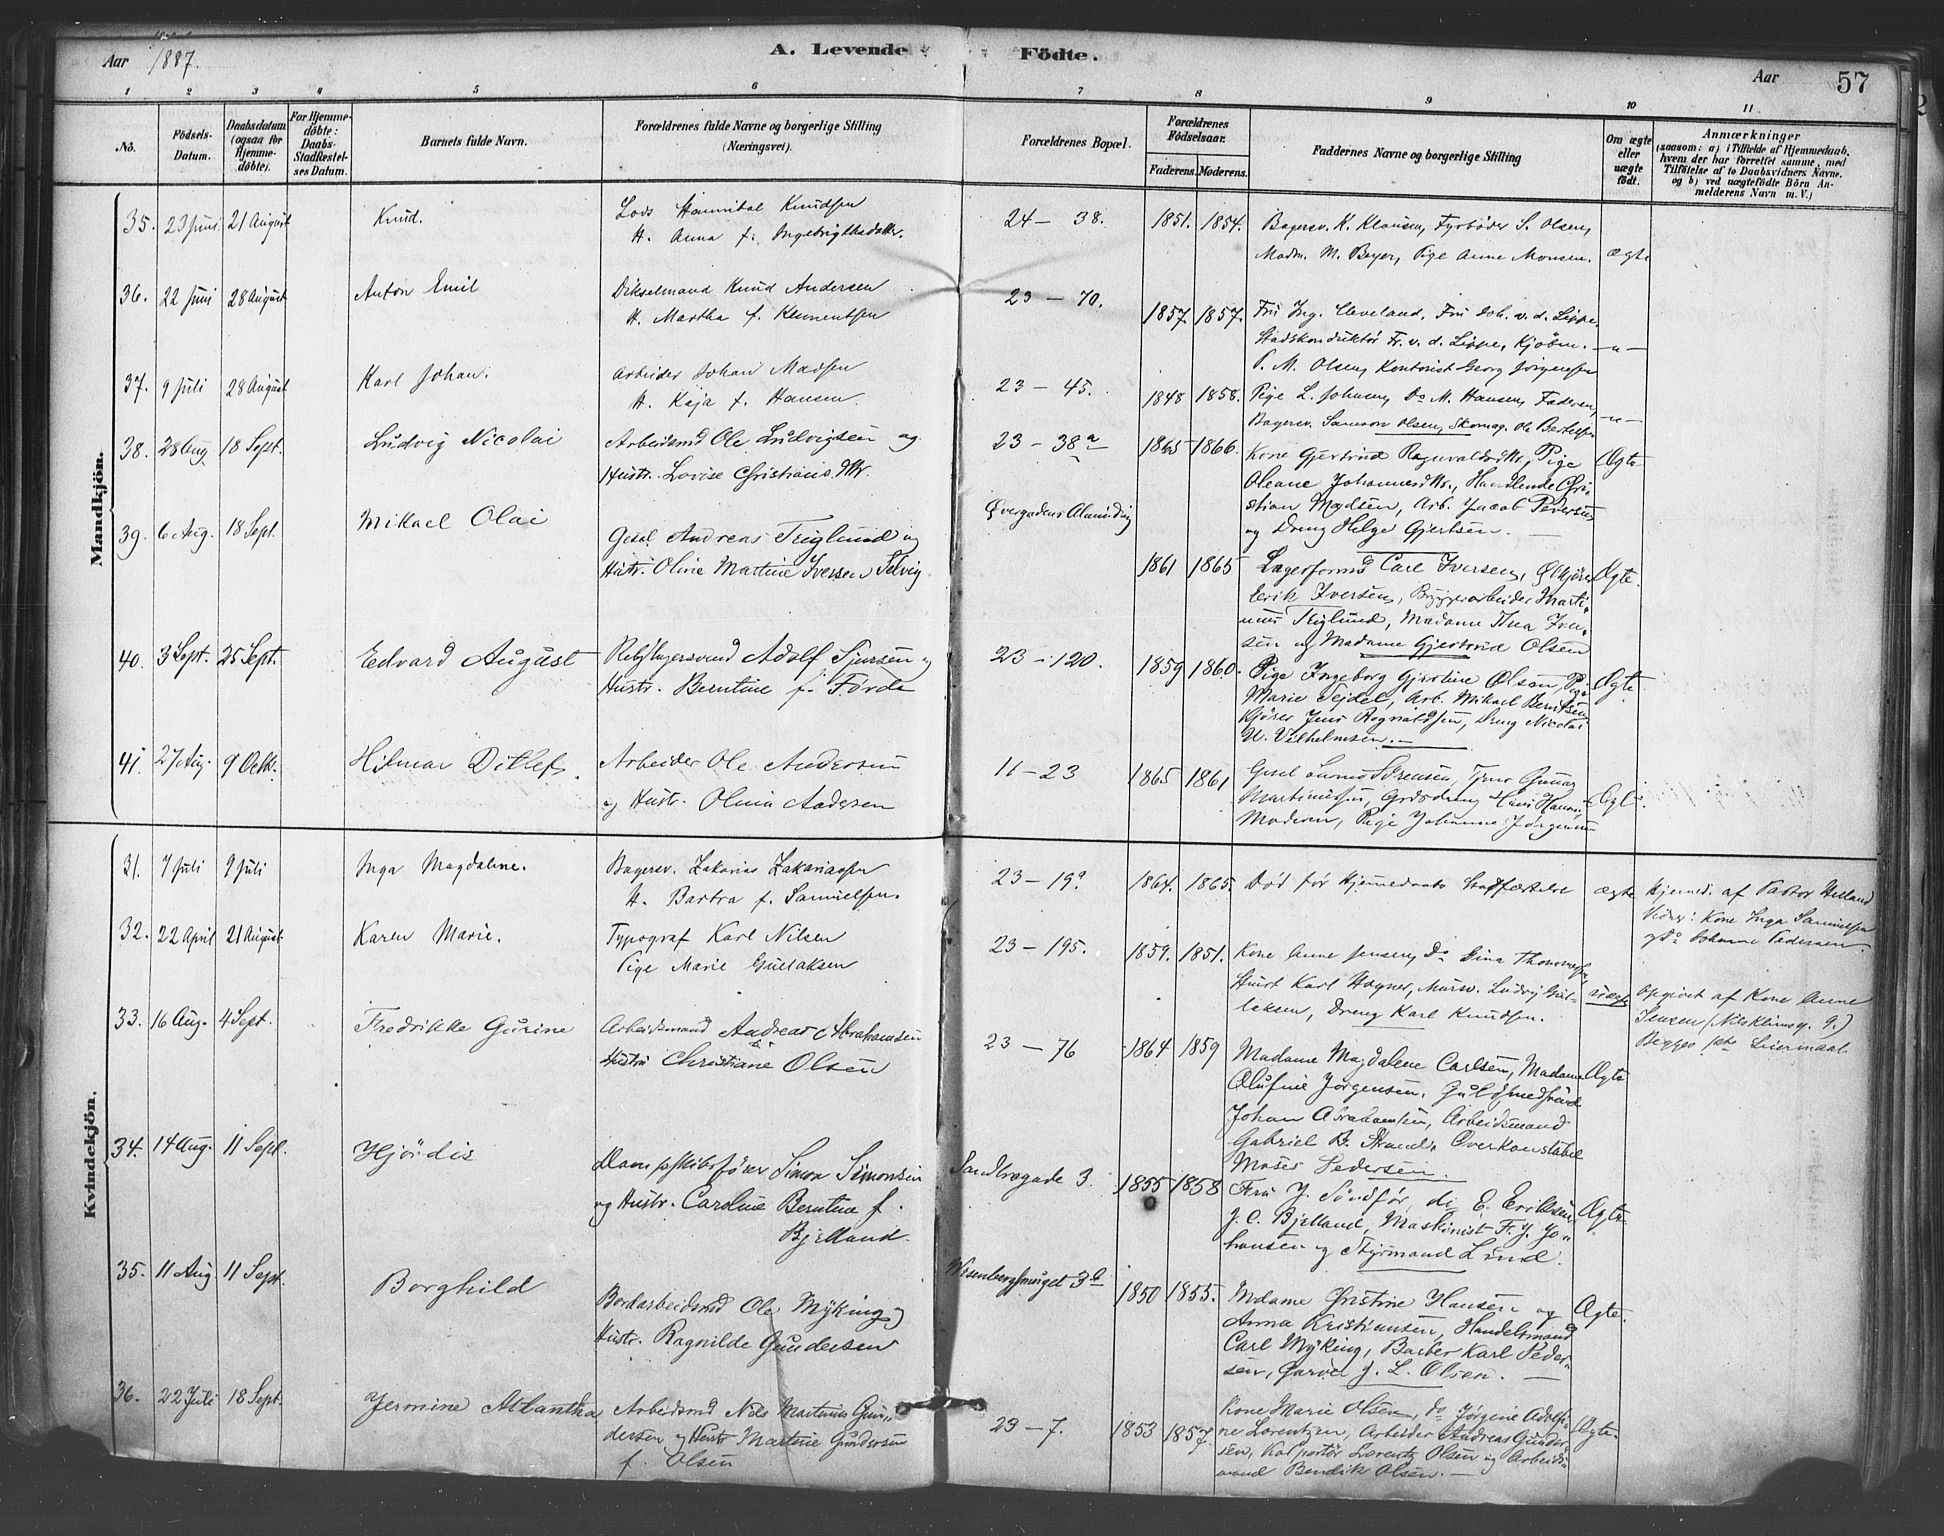 Aar 1887.
A. Levende Födte.
Aar 57
1 2 3 4 5 6 7 8 9 10 11
No.
Födsels-Datum.
Daabsdatum (ogsaa for Hjemmedöbte).
For Hjemmedöbte: Daabs-Stadfæstelses Datum.
Barnets fulde Navn.
Forældrenes fulde Navne og borgerlige Stilling (Næringsvei).
Forældrenes Bopæl.
Forældrenes Födselsaar.
Faderens. Moderens.
Faddernes Navne og borgerlige Stilling
Om ægte eller uægte födt.
Anmærkninger (saasom: a) i Tilfælde af Hjemmedaab, hvem der har forrettet samme, med Tilföielse af to Daabsvidners Navne, og b) ved uægtefödte Börn Anmelderens Navn m. V.)
Mandkjön.
35. 23 Juni 21 August Knud.
Lods Hannibal Knudsen
H. Anna f. Ingebrigtsdatter.
24 – 38. 1851. 1854.
Bagersv. K. Klausen, Fyrbøder S. Olsen,
Madm. M. Beyer, Pige Anne Monsen. ægte
36. 22 Juni 28 August Anton Emil
Knud Andersen
H. Martha f. Klementsen
23 – 70. 1857. 1857.
Fru Ing. Cleveland, Fru Joh. v. d. Lippe,
Stadskonduktør Fr. v. d. Lippe, Kjøbm. –"–
P. M. Olsen, Kontorist Georg Jørgensen
37. 9 Juli 28 August Karl Johan.
Arbeider Johan Madsen
H. Kaja f. Hansen
23 – 45. 1848 1858.
Pige L. Johnsen, Do M. Hansen, Faderen, –"–
Bagersv. Samson Olsen, Skomag. Ole Bertelsen
38. 28 Aug. 18 Sept. Ludvig Nicolai
Arbeidsmd Ole Ludvigsen og
Hustr. Lovise Christiansdtr.
23 – 38a 1865 1866.
Kone Gjertrud Ragnvaldsdtr., Pige Ægte
Oleane Johannesdtr., Handlende Chri-
stian Madsen, Arb. Jacob Pedersen
og Dreng Helge Gjertsen. –
39. 6 Aug. 18 Sept. Mikael Olai
Gesel Andreas Teiglund og
Hustr. Oline Martine Iversen Selvig
Øvregadens Alminding 1861 1865
Lagerformd Carl Iversen, Ægte.
Erik Iversen, Bryggearbeider Marti-
nus Teiglund, Madame Thea Iver-
sen og Madame Gjertrud Olsen
40. 3 Sept. 25 Sept. Edvard August
Adolf Sjursen og
Hustr. Berntine f. Førde
23 – 120. 1859 1860.
Pige Ingeborg Gjertine Olsen, Pige Ægte
Marie Seydel, Arb. Mikael Berntsen
Kjører Jens Ragnvaldsen, Dreng Nicolai
W. Vilhelmsen. –
41. 27 Aug. 9 Octbr. Hilmar Ditlef.
Arbeider Ole Andersen
og Hustr. Olina Andersen
11 – 23 1865 1861
Gesel Sørensen, Ægte
Martinussen, Hans
Moderen, Pige Johanne Jørgensen
Kvindekjön.
31. 7 Juli 9 Juli Inga Magdalene.
Bagersv. Zakarias Zakariassen
H. Bartra f. Samuelsen.
23 – 19a 1864. 1865.
Død før Hjemmedaabs Stadfæstelse ægte
Hjemmed. af Pastor Helland
Vidner: Kone Inga Samuelsen
og Do Johanne Pedersen.
32. 22 April 21 August Karen Marie.
Typograf Karl Nilsen
Pige Marie Gullaksen
23 – 195. 1859. 1851.
Kone Anne Jensen, Do Sina Thomassen,
Hust Karl Hagner, Mursv. Ludvig Gul- uægte
laksen, Dreng Karl Knudsen.
Opgivet af Kone Anne
Jensen (Nilsklimsg. 9.)
Begges 1ste Leiermaal
33. 16 Aug. 4 Sept. Fredrikke Gurine
Arbeidsmand Andreas Abrahamsen
Hustru Christiane Olsen
23 – 76 1864 1859
Madame Magdalene Carlsen, Madame Ægte
Olufine Jørgensen, Guldsmedsvend
Johan Abrahamsen, Arbeidsmand
Gabriel B. Strand, Overkonstabel
Moses Pedersen.
34. 14 Aug. 11 Sept. Hjördis
Dampskibsfører Simon Simonsen
og Hustr. Caroline Berntine f.
Bjelland.
Sandbrogade 3. 1855 1858
Fru J. Sundfør, do E. Eriksen, Ægte
J. C. Bjelland, Maskinist F. J. Jo-
hansen og Styrmand Lund.
35. 11 Aug 11 Sept. Borghild
Bordarbeidsmd Ole Mÿking og
Hustr. Ragnilde Gundersen
Wesenbergsmuget 3b 1850 1855.
Madame Christine Hansen og Ægte.
Anna Kristiansen, Handelsmand
Carl Mÿking, Barber Karl Peder-
sen, Garver J. L. Olsen. –
36. 22 Juli 18 Sept. Jermine Atlantha
Arbeidsmd Nils Martinus Gun-
dersen og Hustr Martine Gundersen
f. Olsen
23 – 7. 1853 1857.
Kone Marie Olsen, do Jørgine Adolfi- Ægte.
ne Lorentzen, Arbeider Andreas Gunder-
sen, Kolportør Lorentz Olsen og Arbeids-
mand Bendik Olsen. –